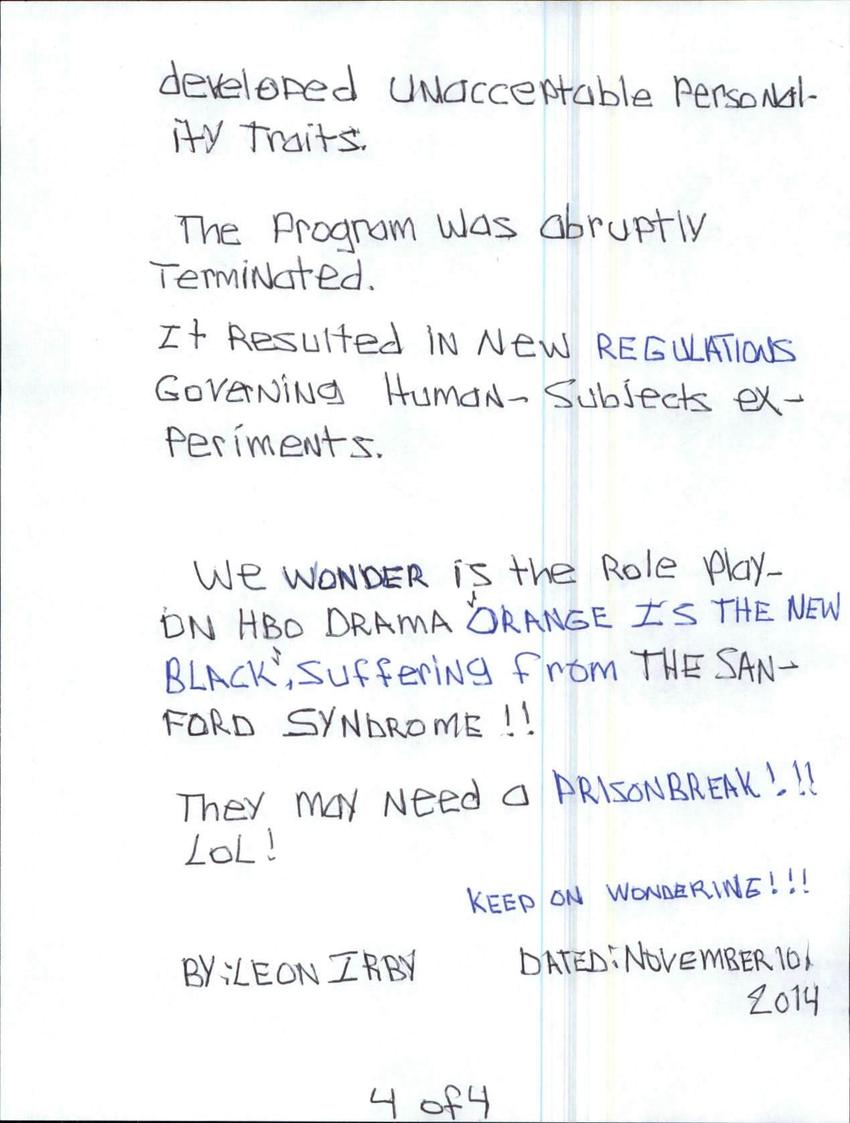 developed UNacceptable Personal-
ity Traits.
The Program was abruptly
Terminated.
It Resulted in New REGULATIONS
Governing Human- Subjects ex-
periments.
We WONDER is the Role Play-
ON HBO DRAMA "ORANGE IS THE NEW
BLACK", suffering from THE SAN-
FORD SYNDROME!!
They may Need a PRISONBREAK!!!
LOL!
KEEP ON WONDERING!!!
BY: LEON IRBY DATED: NOVEMBER 10,
2014
4 of 4